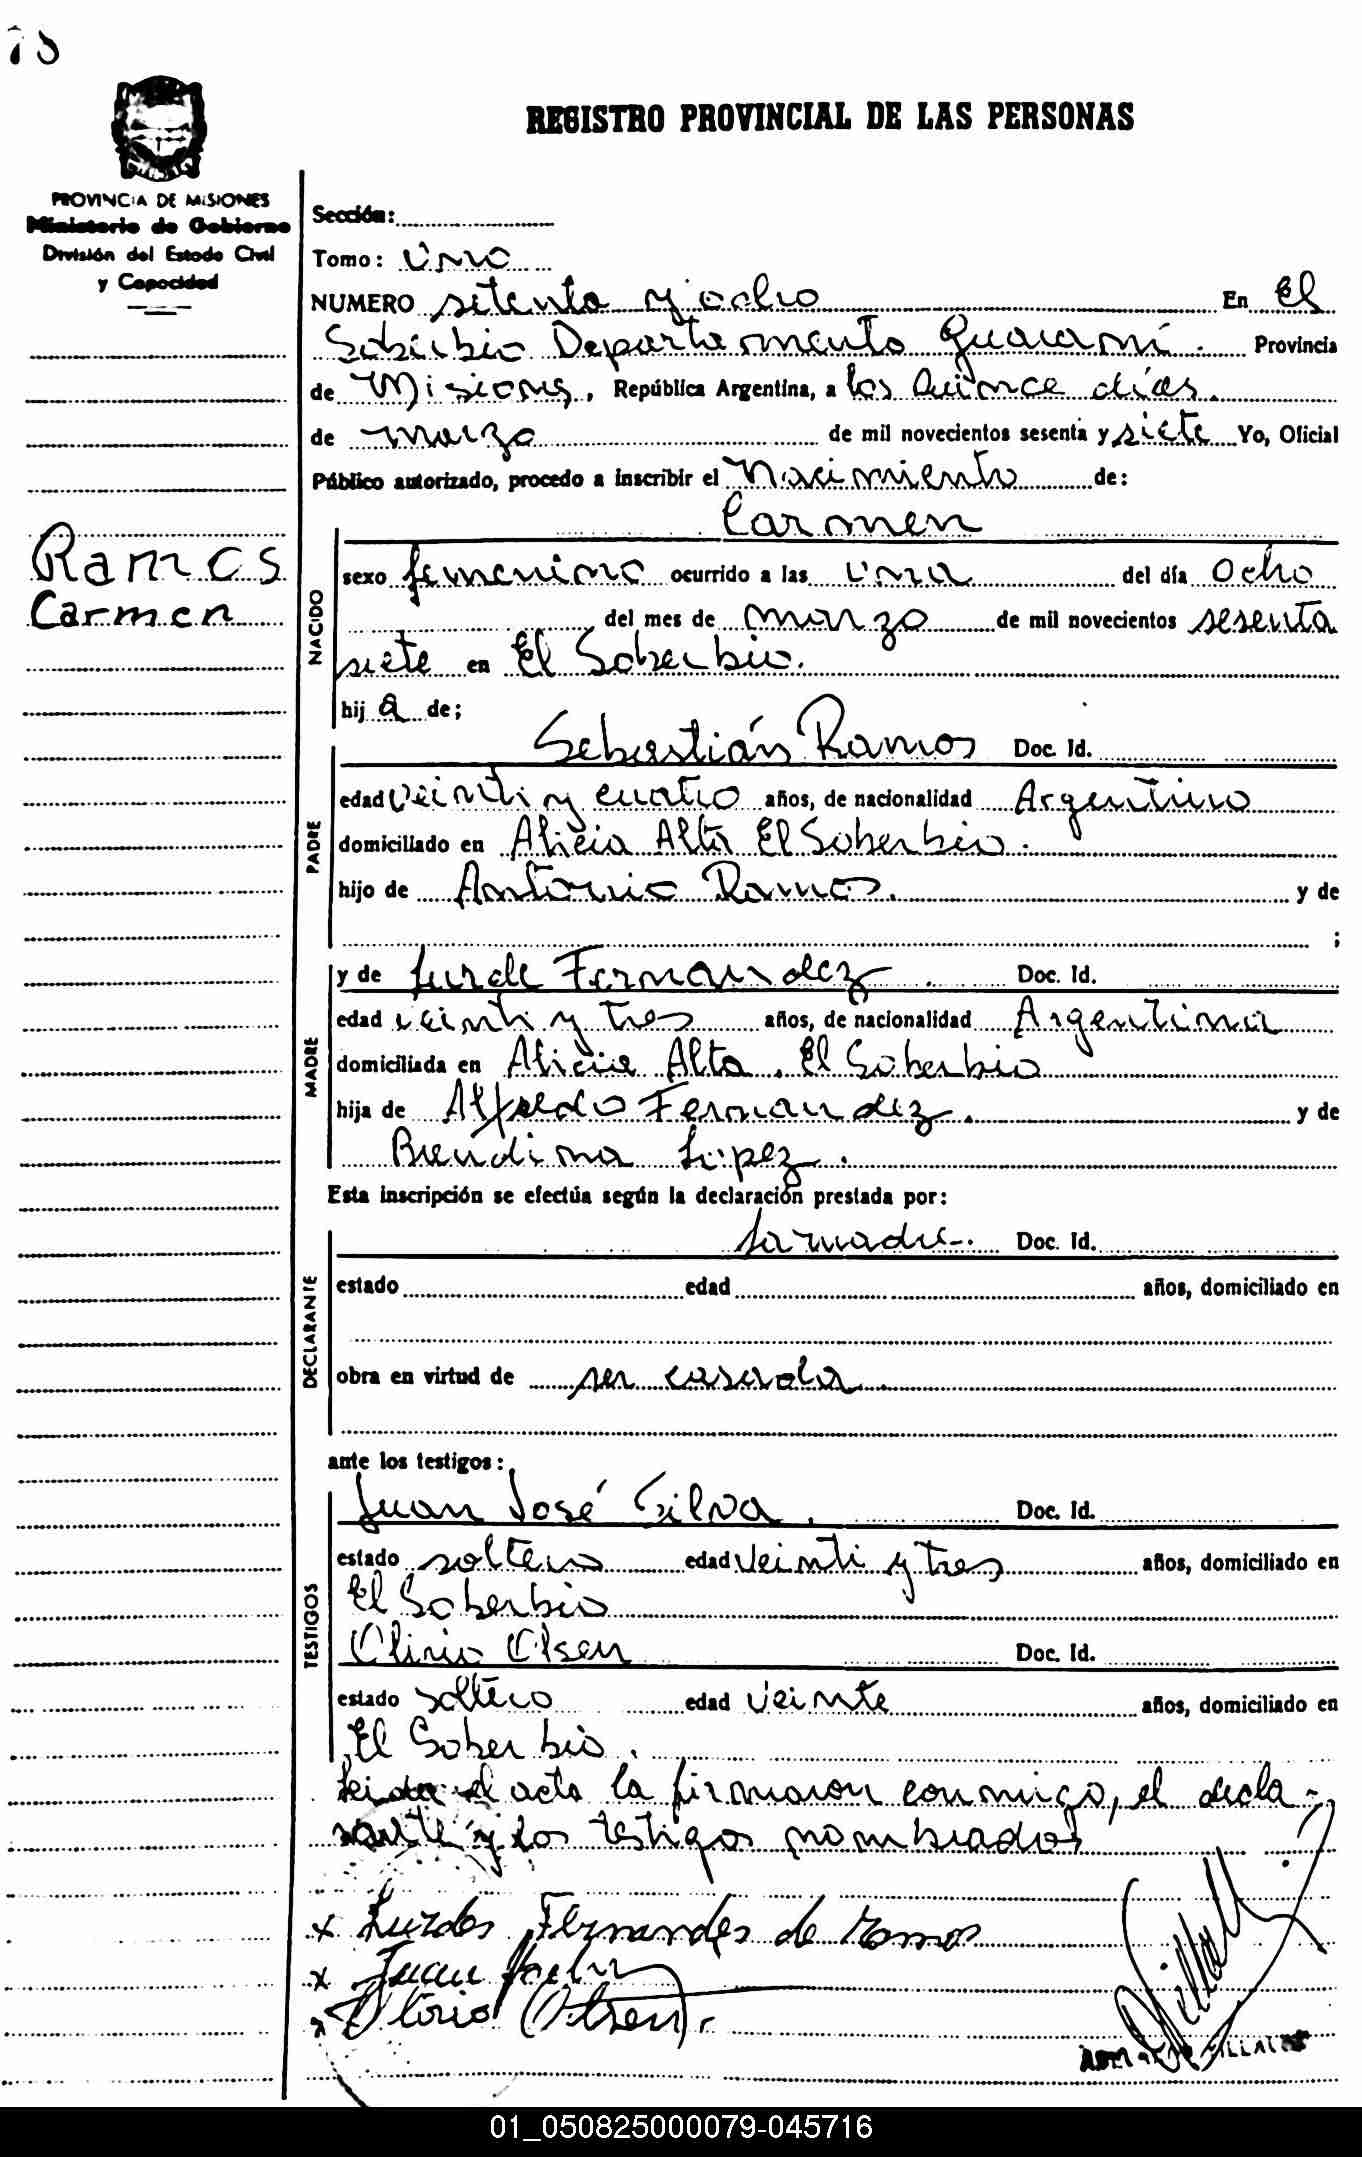 78
REGISTRO PROVINCIAL DE LAS PERSONAS
PROVINCIA DE MISIONES
Ministerio de Gobierno
División del Estado Civil
y Capacidad
Sección:
Tomo: Uno
NUMERO setenta y ocho En El
Soberbio Departamento Guaraní. Provincia
de Misiones, República Argentina, a los Quince días.
de marzo de mil novecientos sesenta y siete Yo, Oficial
Público autorizado, procedo a inscribir el Nacimiento de:
Ramos
Carmen
NACIDO
Carmen
sexo femenino ocurrido a las una del día Ocho
del mes de marzo de mil novecientos sesenta
siete en El Soberbio.
hij a de;
PADRE
Sebastián Ramos Doc. Id.
edad veinti y cuatro años, de nacionalidad Argentino
domiciliado en Alicia Alta El Soberbio.
hijo de Antonio Ramos. y de
;
MADRE
y de Lurde Fernandez Doc. Id.
edad veinti y tres años, de nacionalidad Argentina
domiciliada en Alicia Alta, El Soberbio
hija de Alfredo Fernandez. y de
López.
Esta inscripción se efectúa según la declaración prestada por:
DECLARANTE
La madre. Doc. Id.
estado edad años, domiciliado en
obra en virtud de ser casada.
ante los testigos:
TESTIGOS
Juan José Silva. Doc. Id.
estado soltero edad veinti y tres años, domiciliado en
El Soberbio
Olsen Doc. Id.
estado soltero edad veinte años, domiciliado en
El Soberbio.
Leida el acta la firmaron conmigo, el decla-
rante y los testigos nombrados
x Lurdes Fernandes de Ramos
x Juan
x Olsen
VILLALBA
01_050825000079-045716